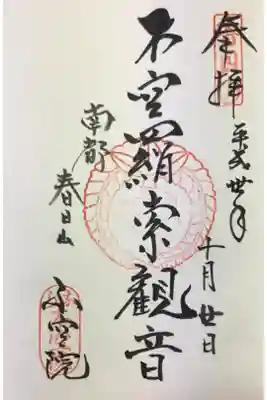 奉拝
平成卅年
十月廿日
不空羂索観音
南都
春日山
不空院